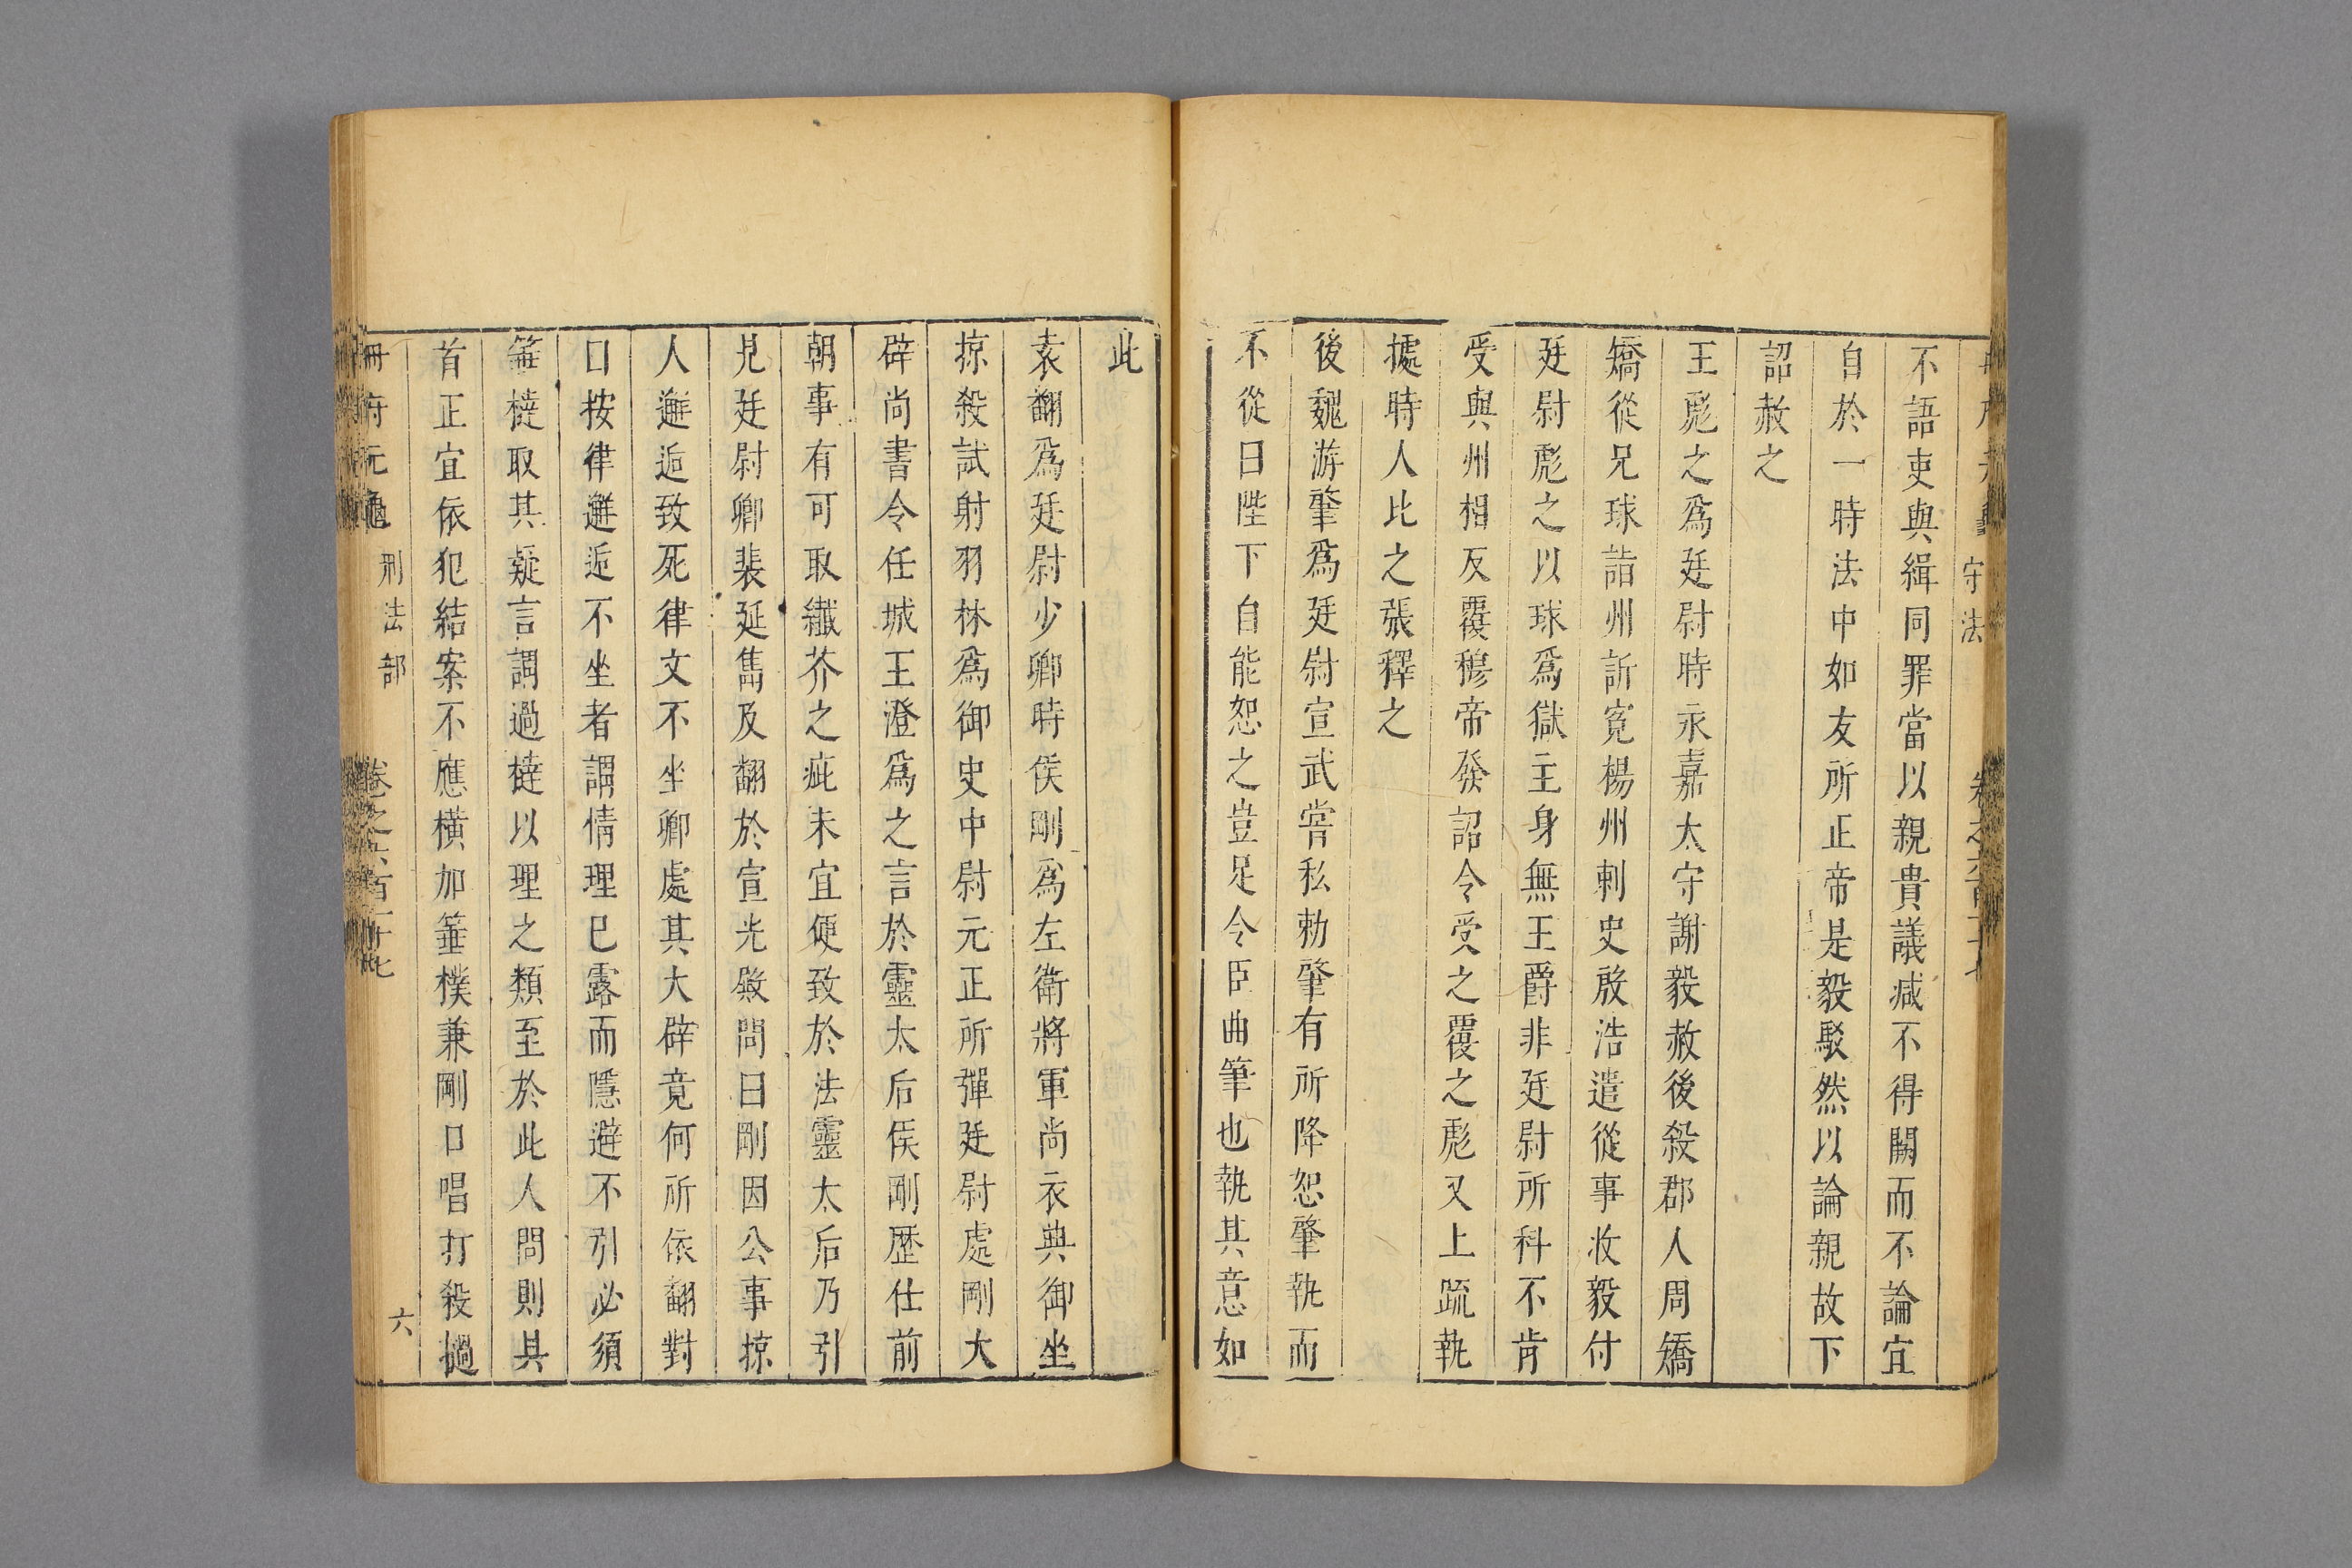 守法
不語吏與緝同罪當以親貴議减不得闕而不論宜
自於一時法中如友所正帝是毅駁然以論親故下
詔赦之
王彪之爲廷尉時永嘉太守謝毅赦後殺郡人周矯
矯從兄球詣州訴寃楊州刺史殷浩遣從事收毅付
廷尉彪之以球爲獄主身無王爵非廷尉所科不肯
受與州相反覆穆帝發詔令受之覆之彪又上疏執
據時人比之張釋之
後魏游肇爲廷尉宣武嘗私勑肇有所降恕肇執而
不從曰陛下自能恕之豈足令臣曲筆也執其意如
此
袁翻爲廷尉少卿時侯剛爲左衛將軍尚衣典御坐
掠殺試射羽林爲御史中尉元正所彈廷尉處剛大
辟尚書令任城王澄爲之言於靈太后侯剛歷仕前
朝事有可取纖芥之疵未宜便致於法靈太后乃引
見廷尉卿裴延雋及翻於宣光殿問曰剛因公事掠
人邂逅致死律文不坐卿處其大辟竟何所依翻對
曰按律邂逅不坐者謂情理已露而隱避不引必須
箠撻取其疑言謂過撻以理之類至於此人問則具
首正宜依犯結案不應橫加箠樸兼剛口唱打殺撾
冊府元龜 刑法部 卷之六百一十七 六